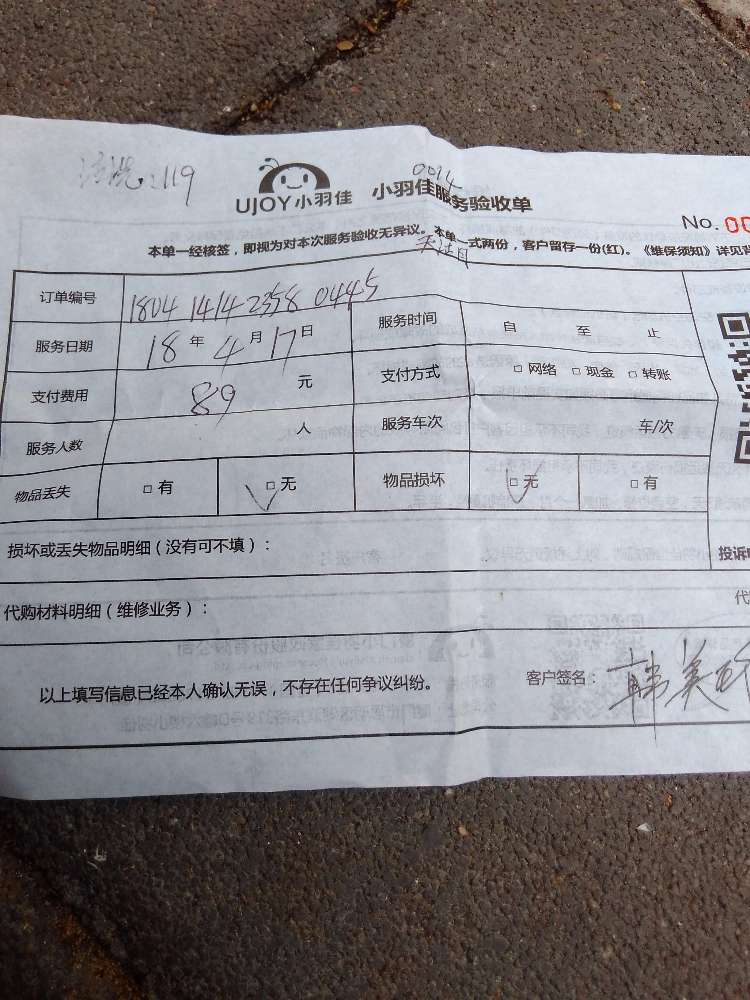 清洗:119
0014
UJOY小羽佳 小羽佳服务验收单
No. 00
本单一经核签，即视为对本次服务验收无异议。本单一式两份，客户留存一份(红)。《维保须知》详见背
订单编号 1804 1414 2358 0445
服务日期 18年4月17日 服务时间 自 至 止
支付费用 89 元 支付方式 □ 网络 □ 现金 □ 转账
服务人数 人 服务车次 车/次
物品丢失 □ 有 □ 无 物品损坏 □ 无 □ 有
损坏或丢失物品明细（没有可不填）： 投诉
代购材料明细（维修业务）： 代
以上填写信息已经本人确认无误，不存在任何争议纠纷。 客户签名： 韩美